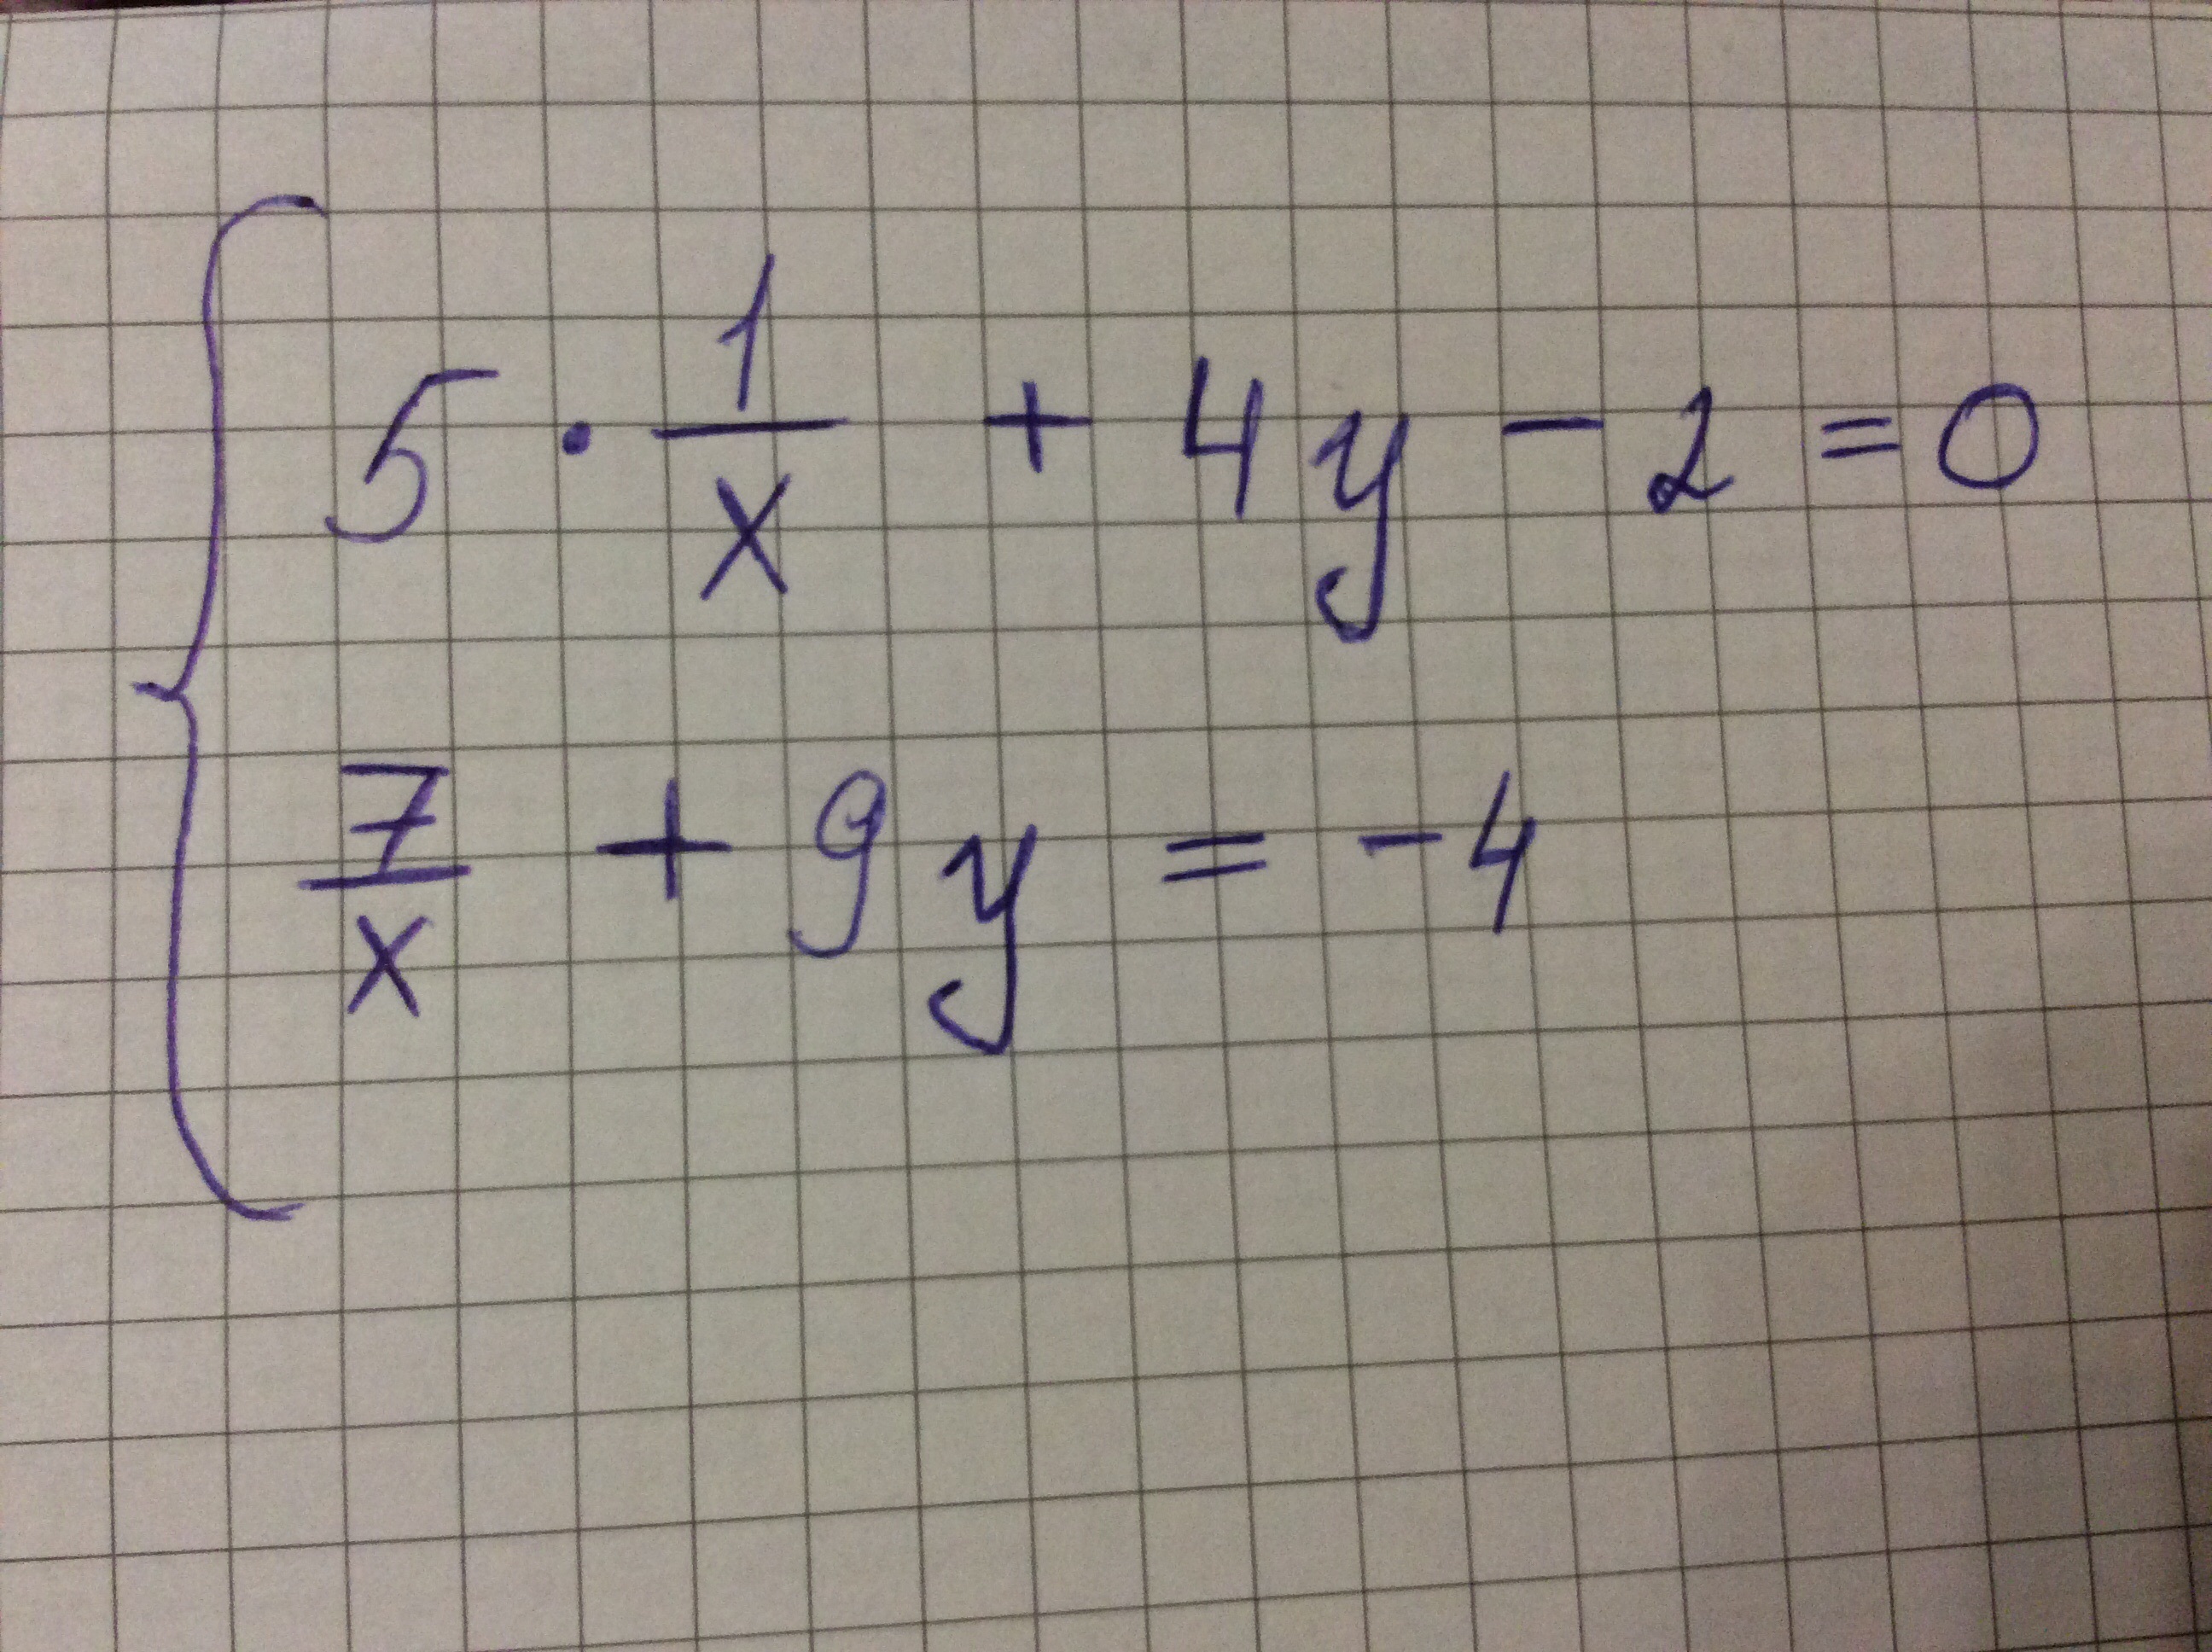 5 · 1/x + 4y - 2 = 0
7/x + 9y = -4